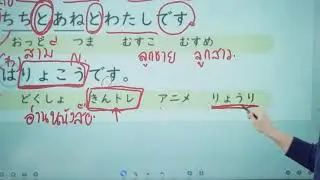 ちちとあねとわたしです
おっと つま むすこ むすめ
สามี ลูกชาย ลูกสาว.
はりょこうです。
どくしょ きんトレ アニメ りょうり
อ่านหนังสือ